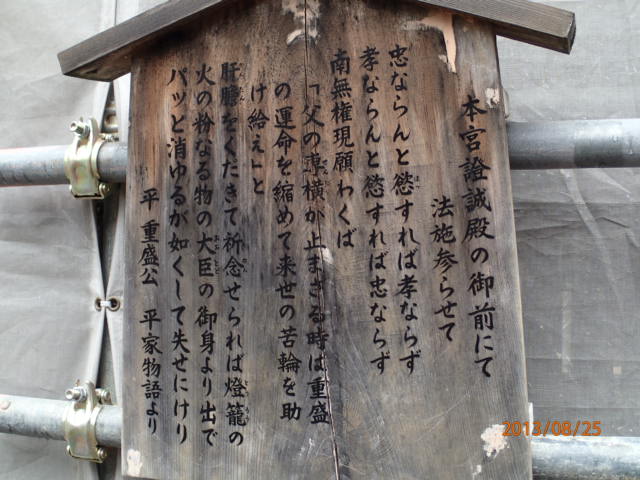 本宮證誠殿の御前にて
法施参らせて
忠ならんと慾すれば孝ならず
孝ならんと慾すれば忠ならず
南無権現願わくば
「父の専横が止まざる時は重盛
の運命を縮めて来世の苦輪を助
け給え」と
肝膽をくだきて祈念せられば燈籠の
火の粉なる物の大臣の御身より出で
パッと消ゆるが如くして失せにけり
平 重盛公 平家物語より
2013/08/25